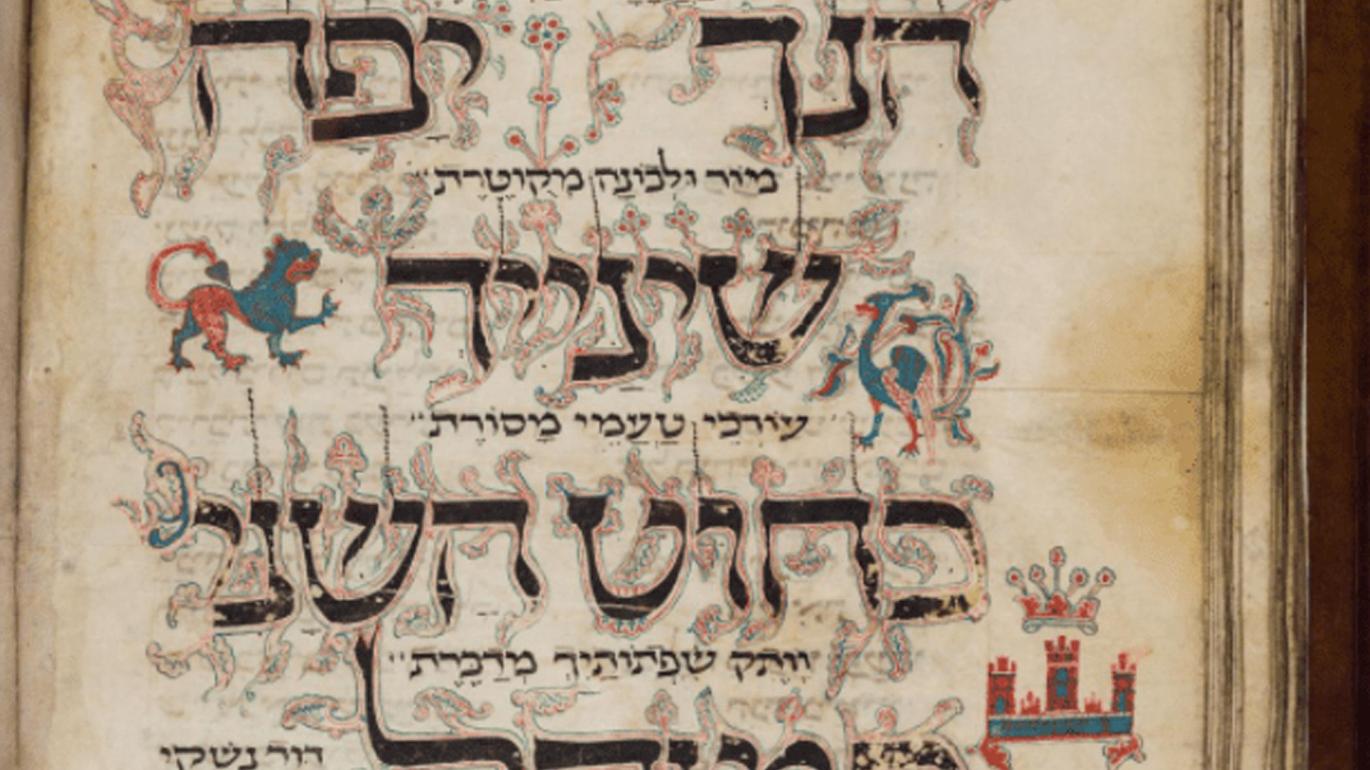 הנך יפה
מור ולבונָה מְקֻוטֶרֶת
שיניך
עורכי טַעֲמֵי מָסורֶת
כחוט השני
וָותֶק שִפְתותַיִךְ מְדַבֶרֶת